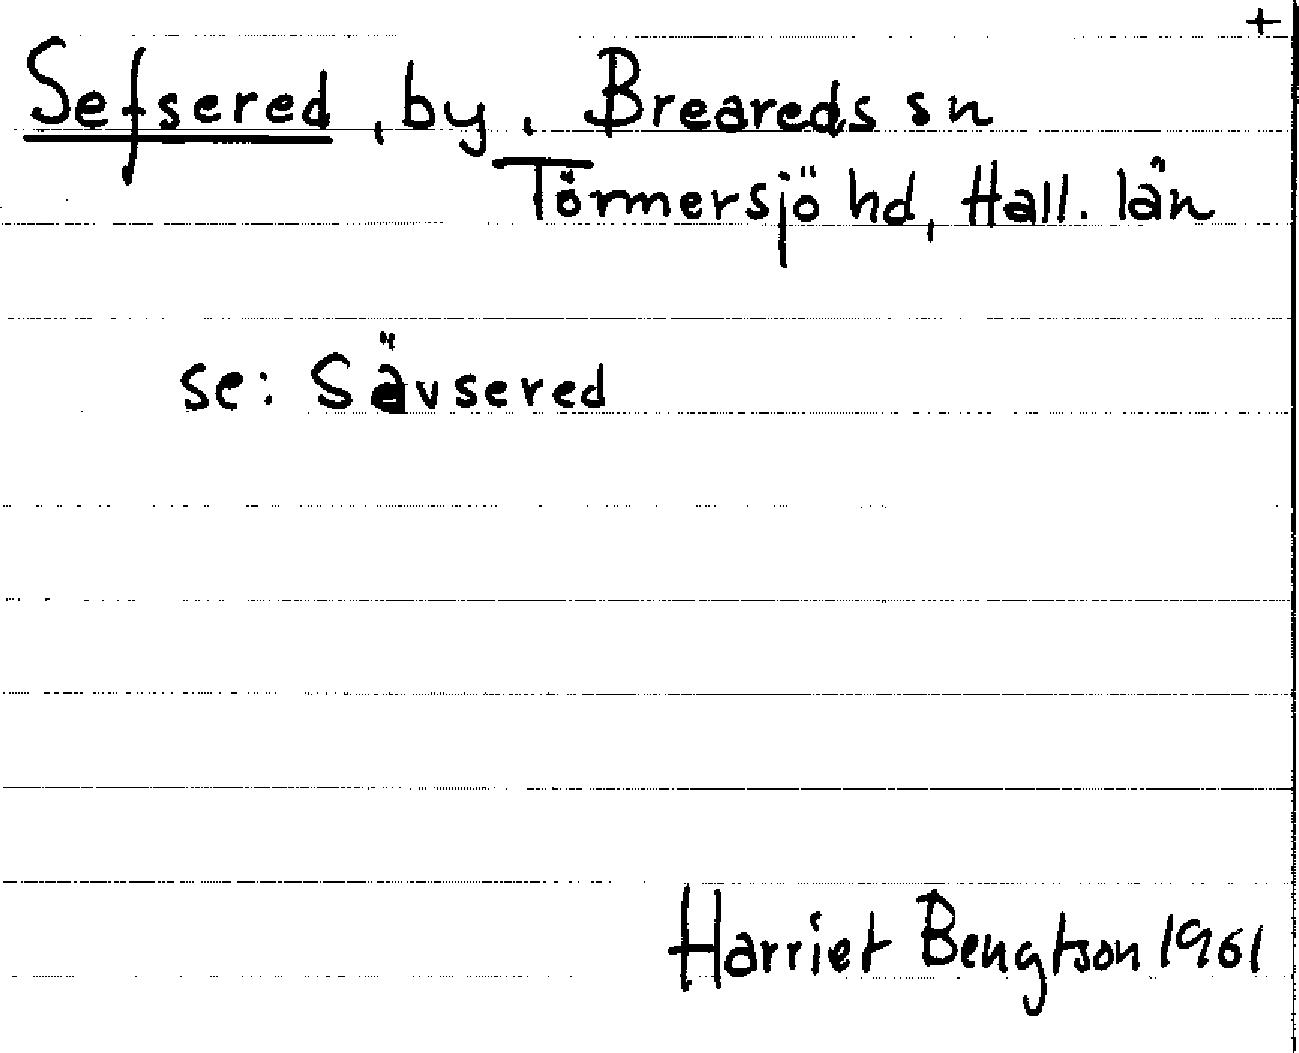 +
Sefsered, by, Breareds sn
Törmersjö hd, Hall. län
se: Sävsered
Harriet Bengtson 1961